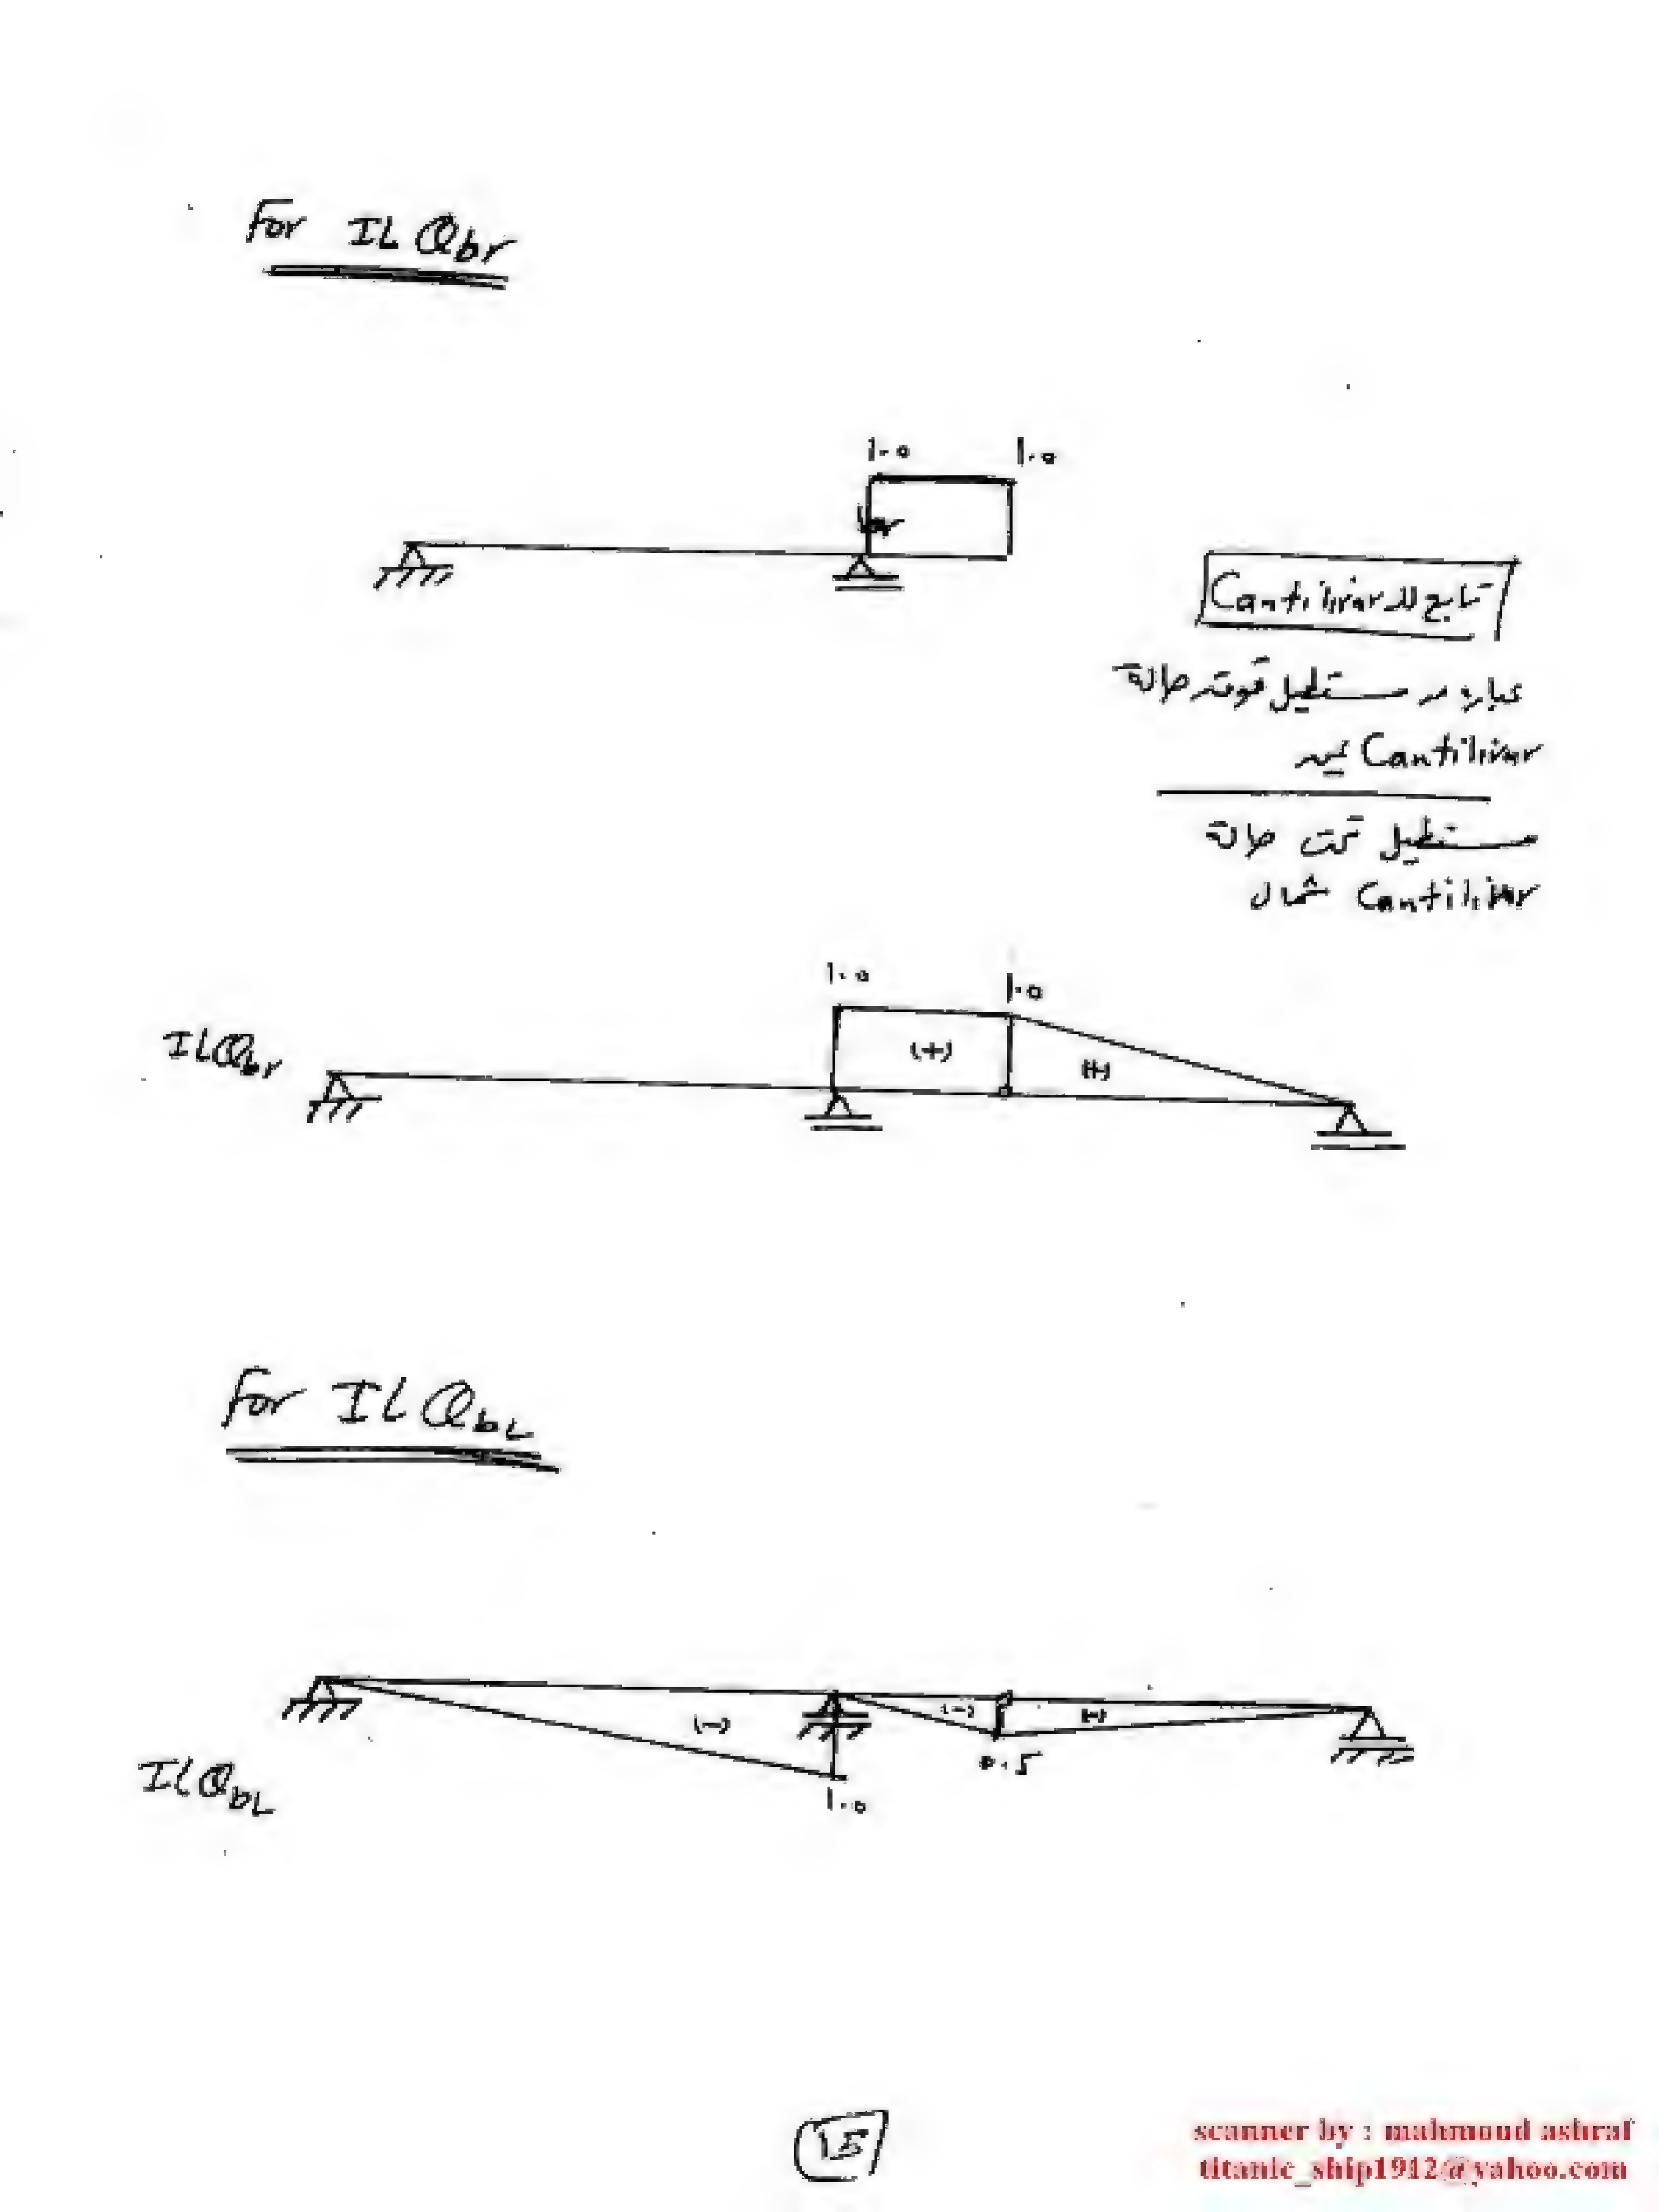 For IL Qbr
1.0 1.0
br
تابع لل Cantilivar
عباره مستطيل فوق حالة
Cantilivar يمين
مستطيل تحت حالة
Cantilivar شمال
1.0 1.0
ILQbr
(+)
(+)
For IL QbL
(-) (-) (-)
0.5
ILQbL
1.0
15
scanner by : mahmoud ashraf
titanic_ship1912@yahoo.com